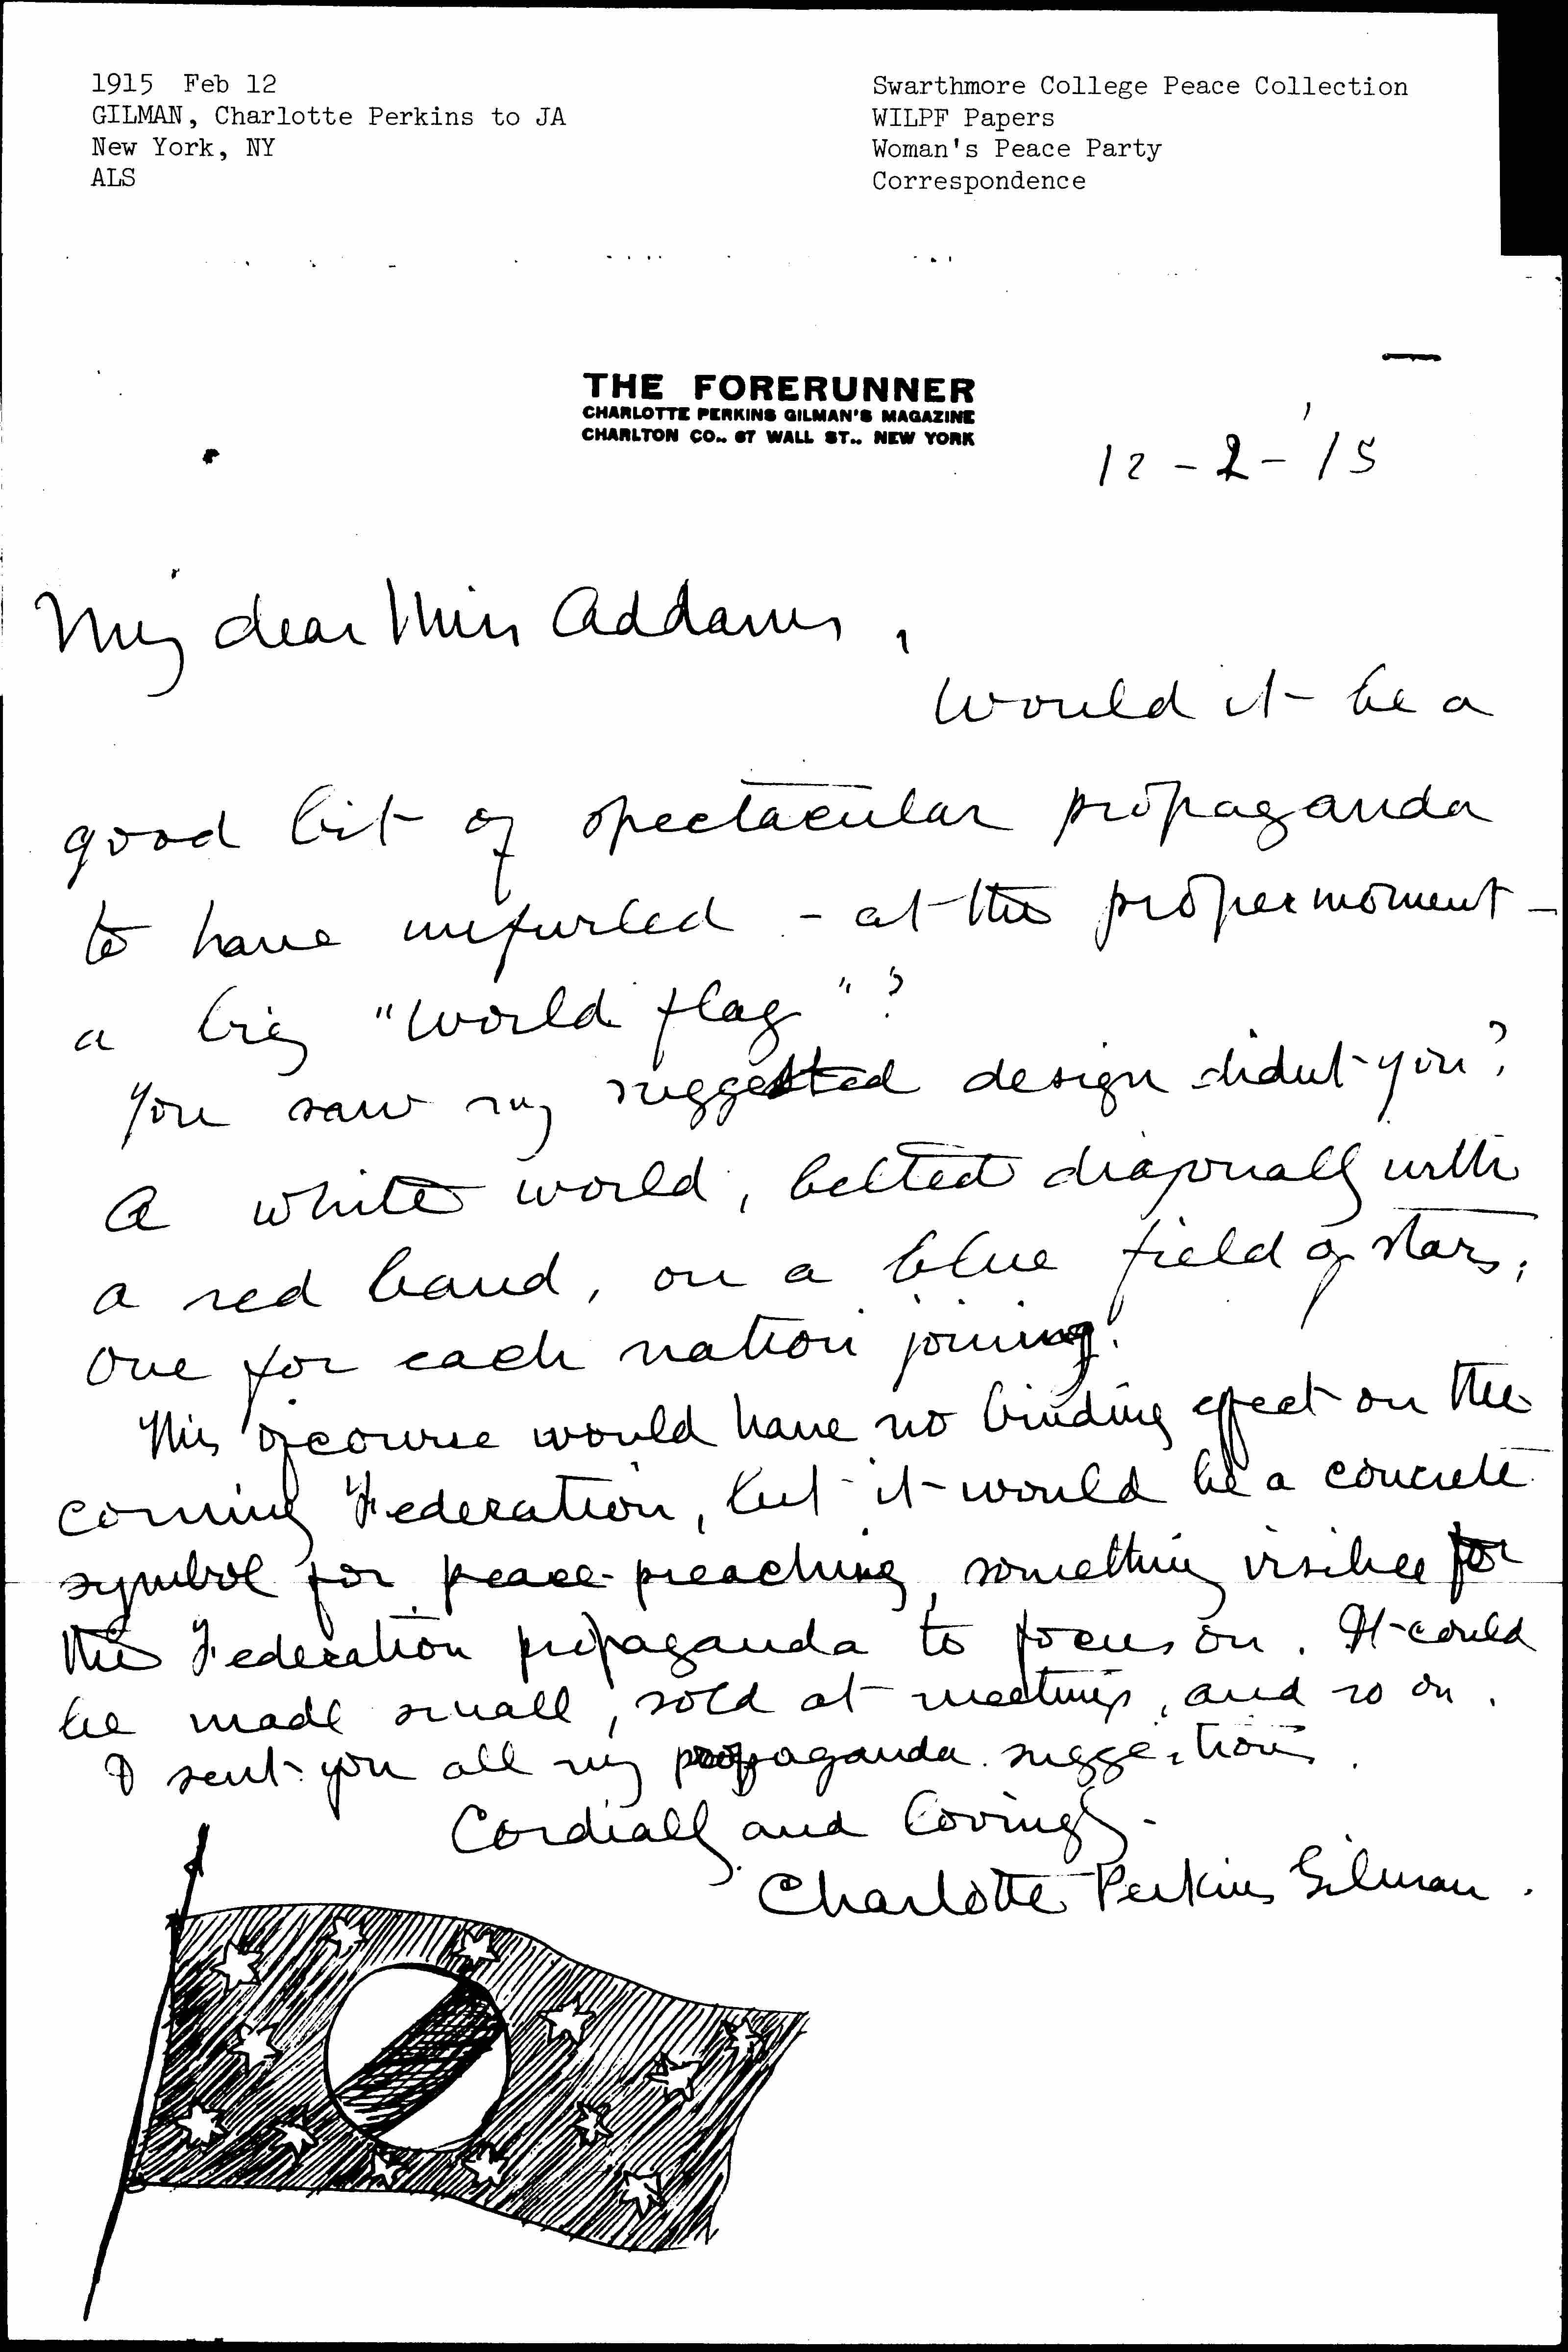 1915 Feb 12
GILMAN, Charlotte Perkins to JA
New York, NY
ALS
Swarthmore College Peace Collection
WILPF Papers
Woman's Peace Party
Correspondence
THE FORERUNNER
CHARLOTTE PERKINS GILMAN'S MAGAZINE
CHARLTON CO., 67 WALL ST., NEW YORK
12 - 2 - '15
My dear Miss Addams,
Would it be a
good bit of spectacular propaganda
to have unfurled - at the proper moment -
a big "World flag"?
You saw my suggested design didnt you?
A white world, belted diagonally with
a red band, on a blue field of stars,
one for each nation joining.
This of course would have no binding effect on the
coming Federation, but it would be a concrete
symbol for peace-preaching, something visible for
the Federation propaganda to focus on. It could
be made small, sold at meetings, and so on.
I sent you all my propaganda suggestions.
Cordially and lovingly -
Charlotte Perkins Gilman.